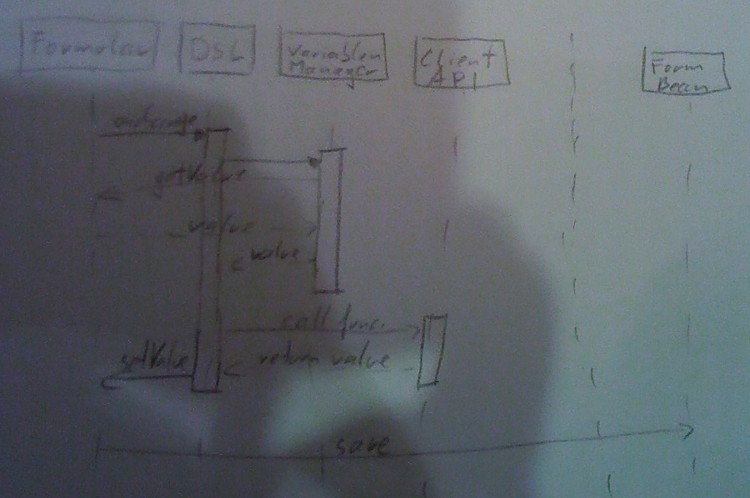 Formular
DSL
Variablen
Manager
Client
API
Form
Bean
onchange
getValue
value
value
call func.
setValue
return value
save